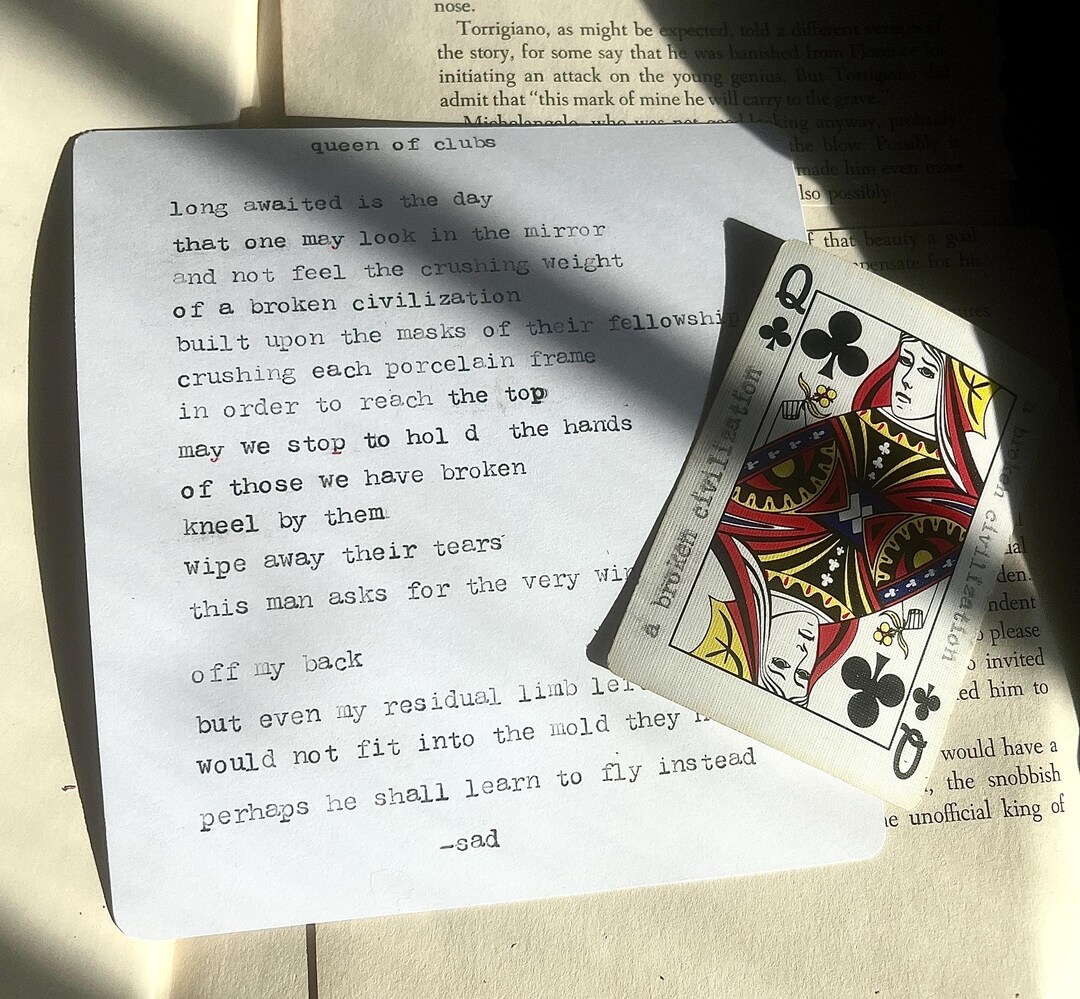 nose.
Torrigiano, as might be expected, told a different
the story, for some say that he was banished from
initiating an attack on the young genius. But Torrigiano did
admit that “this mark of mine he will carry to the grave.”
Michelangelo, who was not good looking anyway,
the blow. Possibly
made him even more
also possibly
that beauty a
for his
queen of clubs
long awaited is the day
that one may look in the mirror
and not feel the crushing weight
of a broken civilization
built upon the masks of their fellowship
crushing each porcelain frame
in order to reach the top
may we stop to hol d the hands
of those we have broken
kneel by them
wipe away their tears
this man asks for the very
off my back
but even my residual limb
would not fit into the mold they
perhaps he shall learn to fly instead
-sad
Q
a broken civilization
a broken civilization
Q
den.
please
invited
him to
would have a
the snobbish
unofficial king of